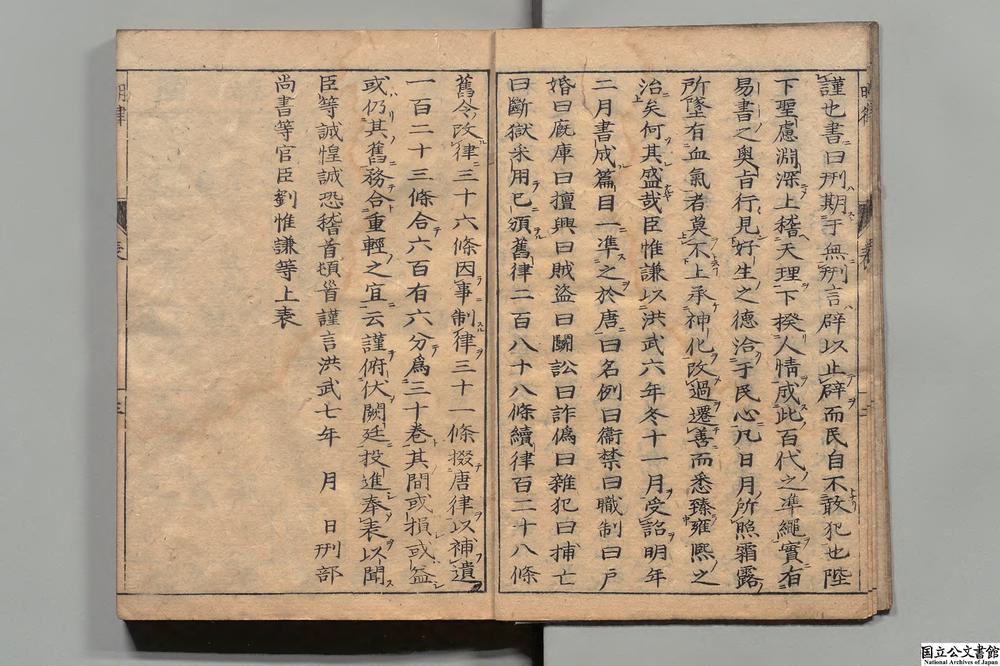 謹也書曰刑期于無刑言辟以止辟而民自不敢犯也陛
下聖慮淵深上稽天理下揆人情成此百代之準繩實有
易書之奥旨行見好生之德洽于民心凡日月所照霜露
所墜有血氣者莫不上承神化改過遷善而悉臻雍熙之
治矣何其盛哉臣惟謙以洪武六年冬十一月受詔明年
二月書成篇目一準之於唐曰名例曰衞禁曰職制曰戸
婚曰厩庫曰擅興曰賊盜曰鬪訟曰詐僞曰雜犯曰捕亡
曰斷獄采用已頒舊律二百八十八條續律百二十八條
舊令改律三十六條因事制律三十一條掇唐律以補遺
一百二十三條合六百有六分爲三十卷其間或損或益
或仍其舊務合重輕之宜云謹俯伏闕廷投進奉表以聞
臣等誠惶誠恐稽首頓首謹言洪武七年 月 日刑部
尚書等官臣劉惟謙等上表
明律 表 三
国立公文書館
National Archives of Japan